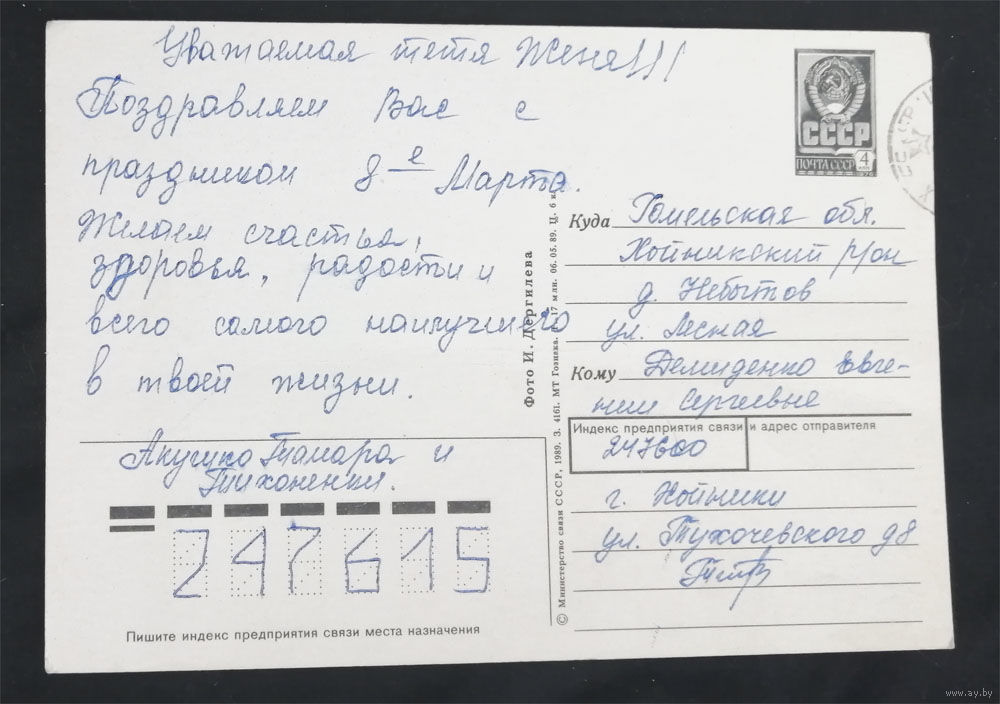 Уважаемая тетя Женя!!!
Поздравляем Вас с
праздником 8 е Марта.
Желаем счастья,
здоровья, радости и
всего самого наилучшего
в твоей жизни.
Якушко Тамара и
СССР
ПОЧТА СССР
4
Куда Гомельская обл.
Хойникский р/он
д. Небытов
ул. Лесная
Кому Демиденко Евге-
нии Сергеевне
Индекс предприятия связи и адрес отправителя
247600
г. Хойники
ул. Тухочевского д 8
Фото И. Дергилева
© Министерство связи СССР, 1989. З. 4161. МТ Гознака. 17 млн. 06.05.89. Ц. 6 к.
247615
Пишите индекс предприятия связи места назначения
www.ay.by